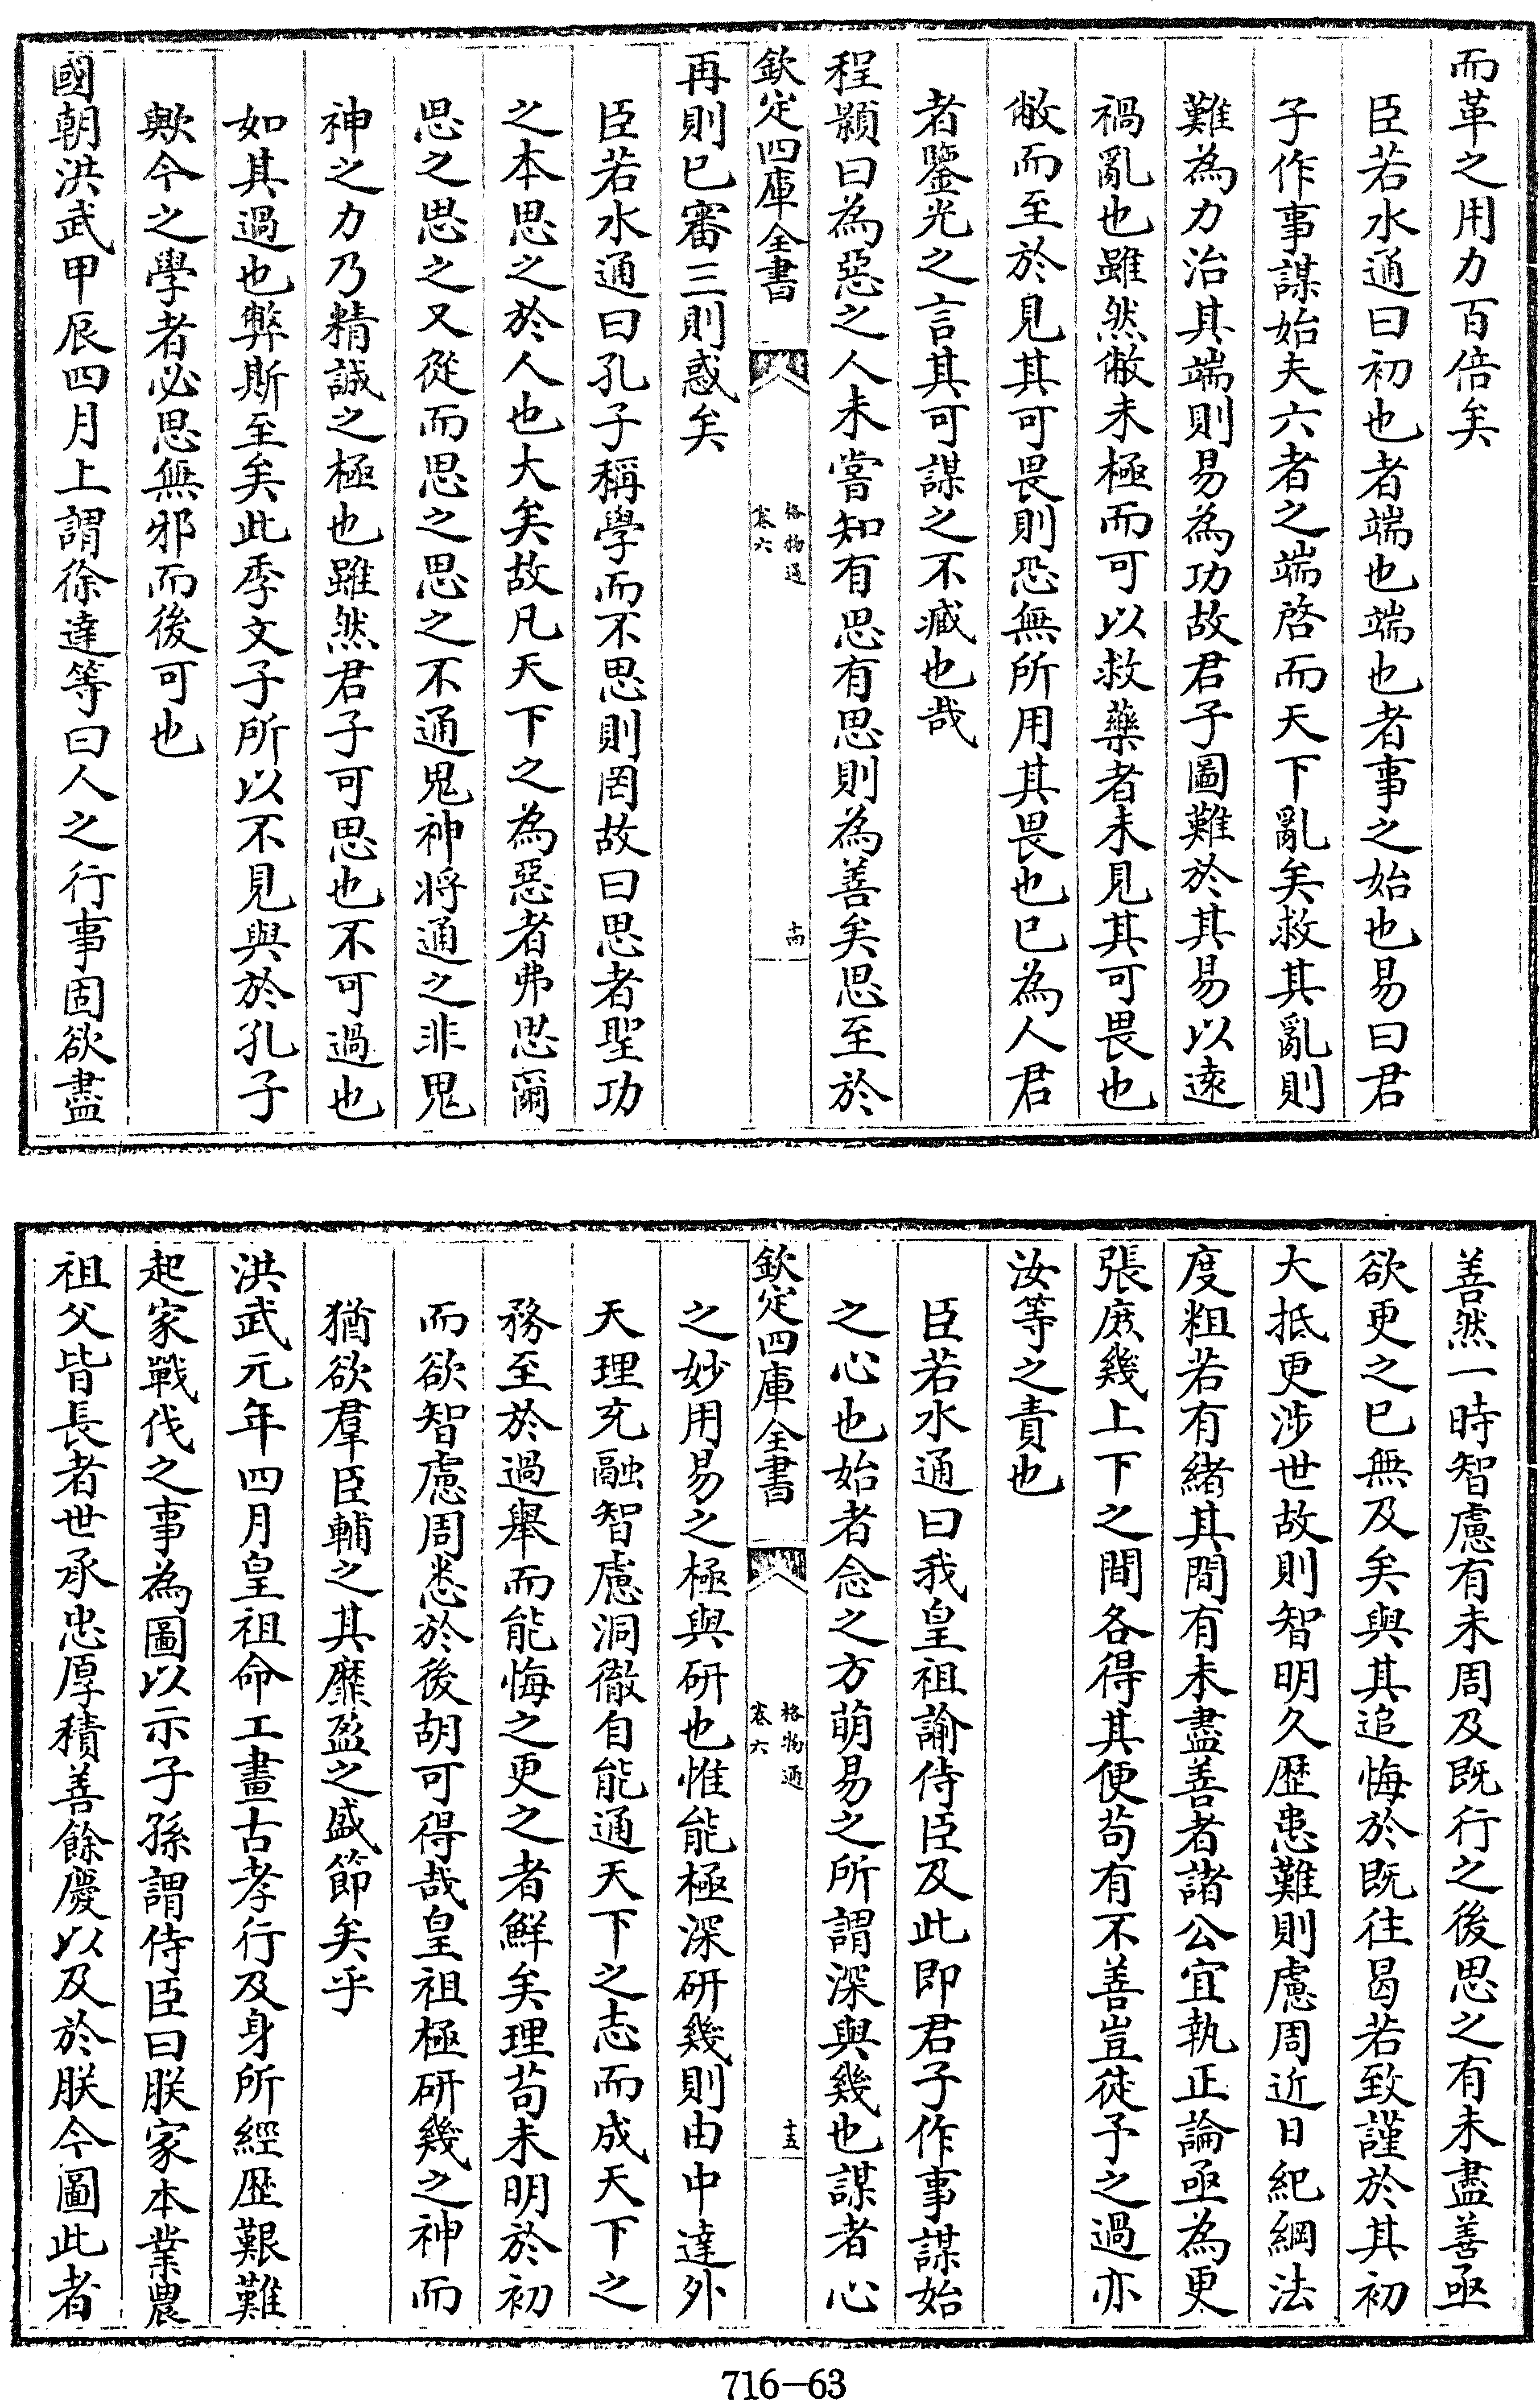 而革之用力百倍矣
臣若水通曰初也者端也端也者事之始也易曰君
子作事謀始夫六者之端啓而天下亂矣救其亂則
難為力治其端則易為功故君子圖難於其易以遠
禍亂也雖然敝未極而可以救藥者未見其可畏也
敝而至於見其可畏則恐無所用其畏也已為人君
者鑒光之言其可謀之不臧也哉
程顥曰為惡之人未嘗知有思有思則為善矣思至於
欽定四庫全書
格物通
卷六
十四
再則已審三則惑矣
臣若水通曰孔子稱學而不思則罔故曰思者聖功
之本思之於人也大矣故凡天下之為惡者弗思爾
思之思之又從而思之思之不通鬼神將通之非鬼
神之力乃精誠之極也雖然君子可思也不可過也
如其過也弊斯至矣此季文子所以不見與於孔子
歟今之學者必思無邪而後可也
國朝洪武甲辰四月上謂徐達等曰人之行事固欲盡
善然一時智慮有未周及既行之後思之有未盡善亟
欲更之已無及矣與其追悔於既往曷若致謹於其初
大抵更涉世故則智明久歷患難則慮周近日紀綱法
度粗若有緒其間有未盡善者諸公宜執正論亟為更
張庶幾上下之間各得其便苟有不善豈徒予之過亦
汝等之責也
臣若水通曰我皇祖諭侍臣及此即君子作事謀始
之心也始者念之方萌易之所謂深與幾也謀者心
欽定四庫全書
格物通
卷六
十五
之妙用易之極與研也惟能極深研幾則由中達外
天理充融智慮洞徹自能通天下之志而成天下之
務至於過舉而能悔之更之者鮮矣理苟未明於初
而欲智慮周悉於後胡可得哉皇祖極研幾之神而
猶欲羣臣輔之其靡盈之盛節矣乎
洪武元年四月皇祖命工畫古孝行及身所經歷艱難
起家戰伐之事為圖以示子孫謂侍臣曰朕家本業農
祖父皆長者世承忠厚積善餘慶以及於朕今圖此者
716-63